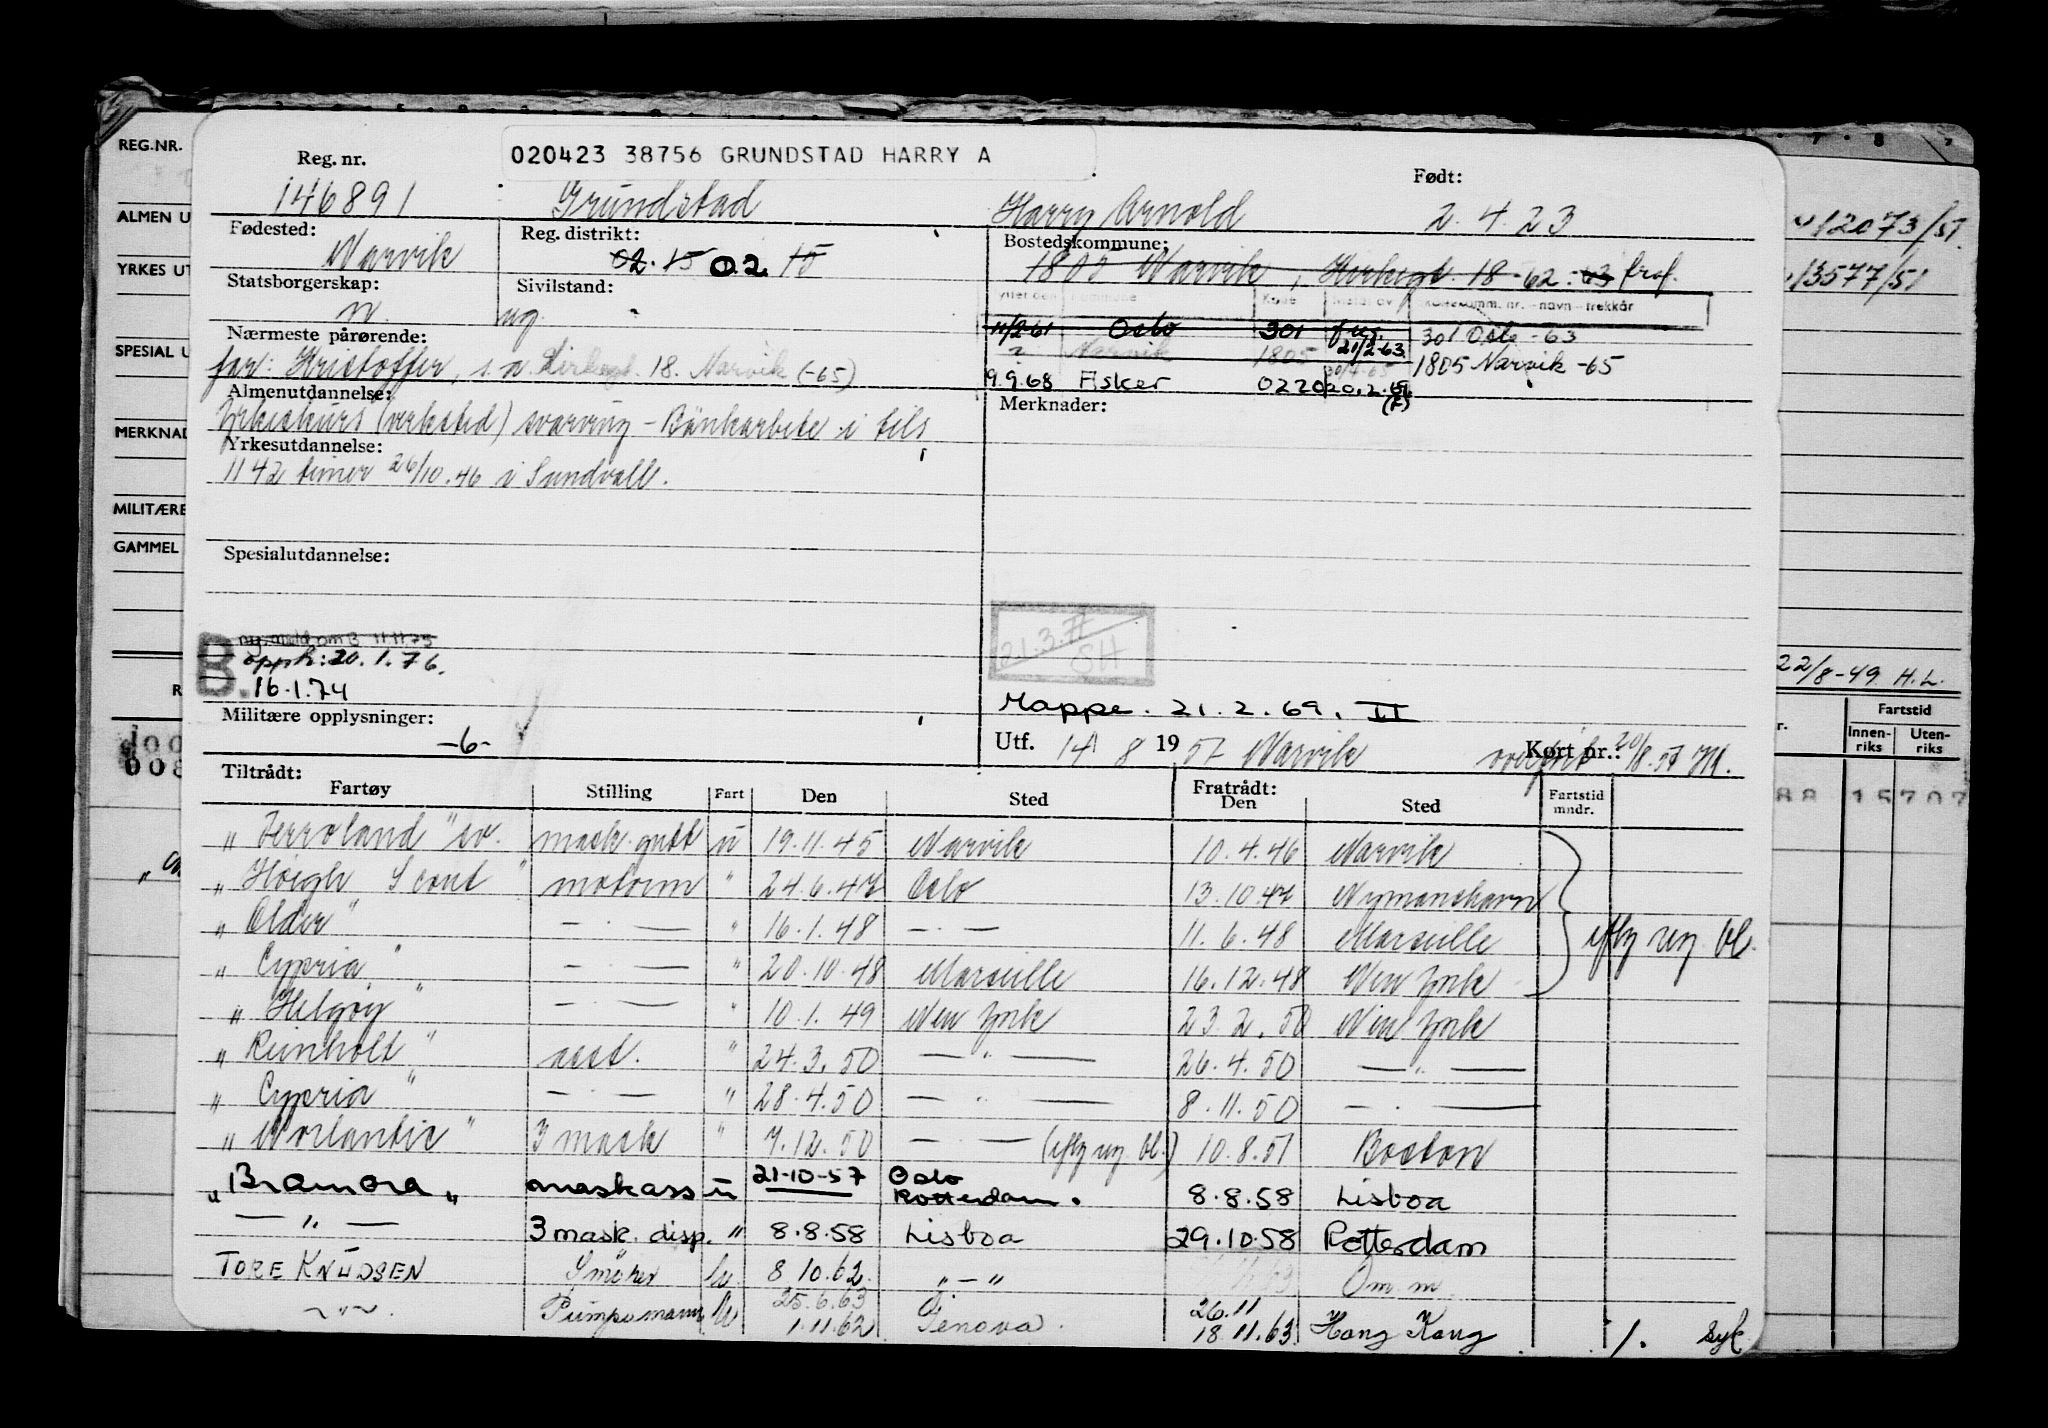 020423 38756 GRUNDSTAD HARRY A
Reg. nr. Født:
146891 Grundstad Harry Arnold 2.4.23
Fødested: Reg. distrikt: Bostedskommune:
Narvik 02.15 02 15 Narvik, 18 -62 -63
Statsborgerskap: Sivilstand:
n. ug.
11/2-61 Oslo 301 21/2-63 301 Oslo -63
Narvik 1805 1805 Narvik -65
9.9.68 Asker 0220 20.2.69
Nærmeste pårørende:
far: Kristoffer, s.a. 18. Narvik (-65)
Almenutdannelse: Merknader:
Yrkeskurs (verksted) svarving - Bänkarbete i tils
Yrkesutdannelse:
1142 timer 26/10.46 i Sundvall.
Spesialutdannelse:
21.3.77
SH
ny meld om B 11 11 75
opph: 20.1.76.
B. 16.1.74
Mappe. 21.2.69. II
Militære opplysninger:
-6-
Utf. 14 8 1957 Narvik Kort nr.: 20/8.57
Tiltrådt: Fratrådt:
Fartøy Stilling Fart Den Sted Den Sted Fartstid mndr.
"Ferroland" sv. mask.gutt u 19.11.45 Narvik 10.4.46 Narvik
"Høigh Scout" motorm " 24.6.47 Oslo 13.10.47
"Older" — . — " 16.1.48 — . — 11.6.48 Marseille
"Cypria" — . — " 20.10.48 Marseille 16.12.48 New York
"Helgøy" — . — " 10.1.49 New York 23.2.50 New York
"Reinholt" asst. " 24.3.50 — " — 26.4.50 — " —
"Cypria" — . — " 28.4.50 — . — 8.11.50 — . —
"Norlantic" 3 mask " 7.12.50 — . — (iflg reg. bl.) 10.8.51 Boston
iflg reg. bl.
"Bramora" maskass u 21-10-57 Oslo Rotterdam. 8.8.58 Lisboa
— " — 3 mask. disp. " 8.8.58 Lisboa 29.10.58 Rotterdam
TORE KNUDSEN Smører u 8 10.62. " — " Om m.
— " —. Pumpemann u 25.6.63 1.11.62 Genova. 26.11 18.11.63 Hong Kong 1. syk
REG.NR.
ALMEN U
YRKES UT
SPESIAL U
MERKNAD
MILITÆRE
GAMMEL
R
12073/51.
13577/51
22/8-49 H.L.
Fartstid
Innenriks Utenriks
88 15707
008